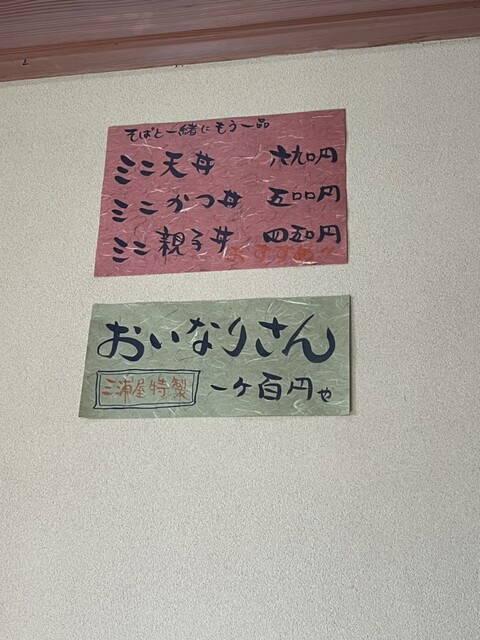 そばと一緒にもう一品
ミニ天丼 六九〇円
ミニかつ丼 五〇〇円
ミニ親子丼 四五〇円
おすすめ
おいなりさん
三浦屋特製 一ケ百円也